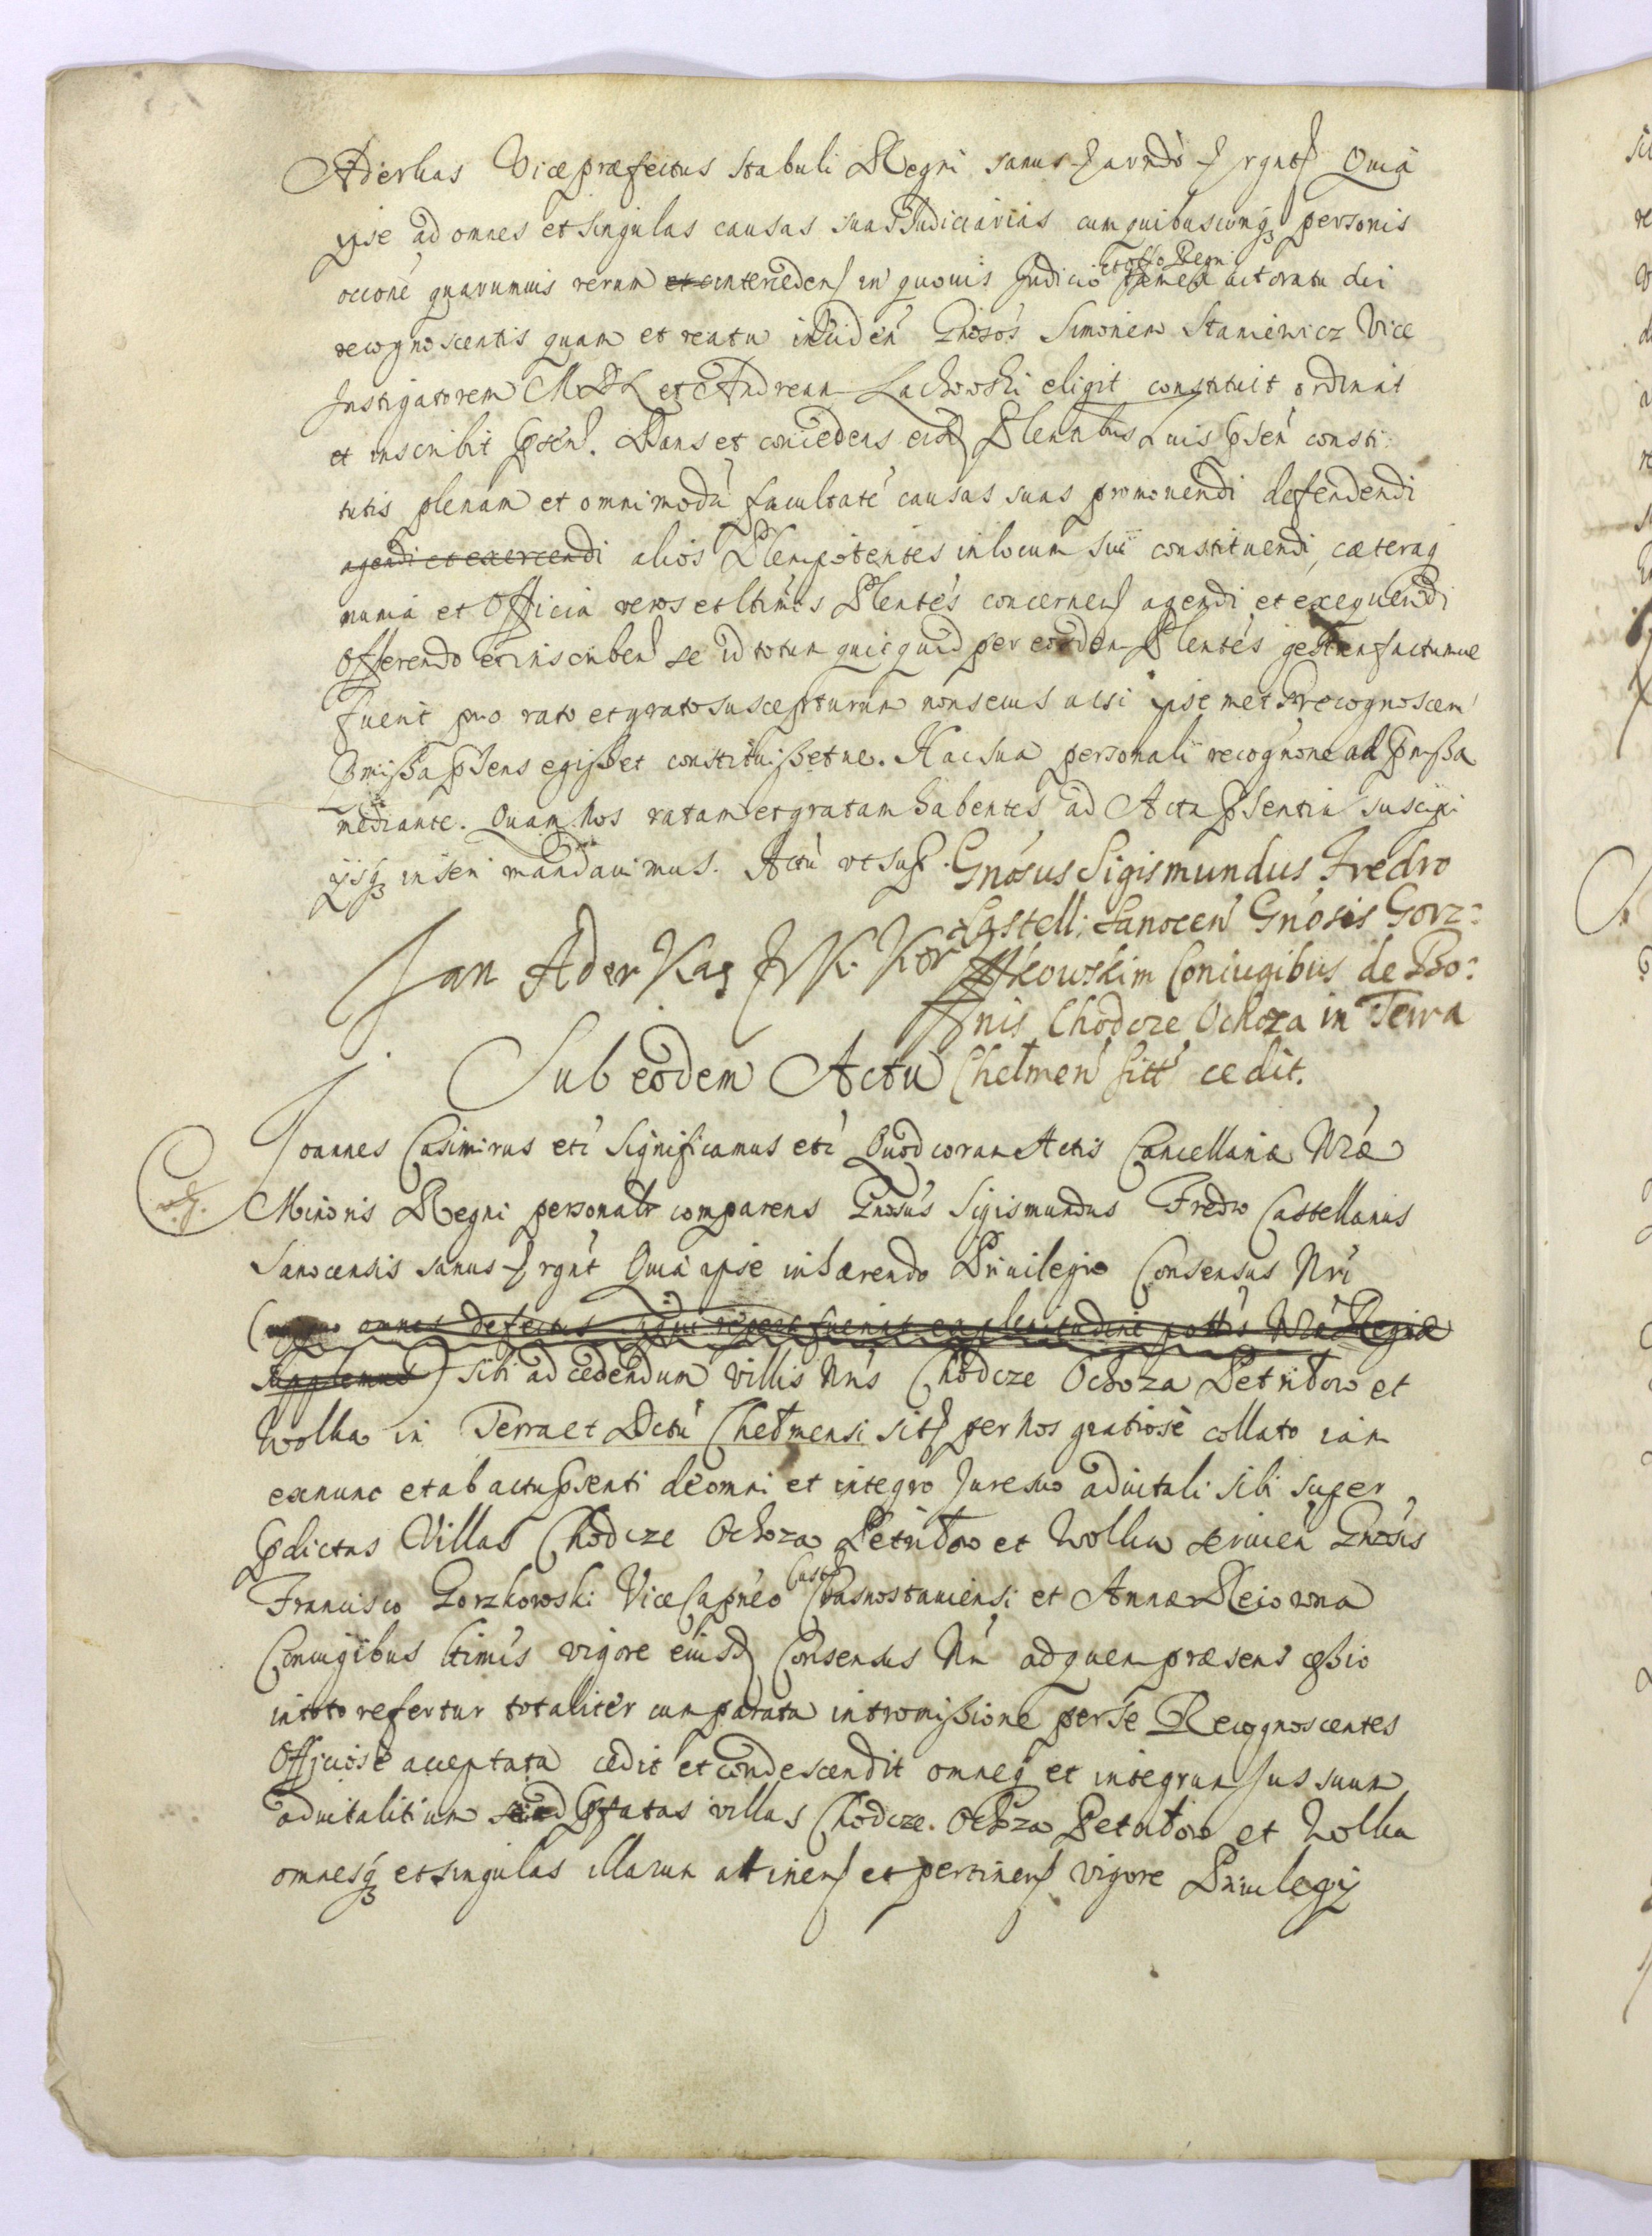 Aderkas Vicæpræfectus stabuli Regni sanus
ipse ad omnes et singulas causas suas Judiciarias cum quibuscunq personis
occoné quarumuis rerum in quouis Judicio actoratu dei
recognoscentis quam et reatu Gnosos Simonem Staniewicz Vice
Instigatorem M D L et Andream Lachowski eligit constituit ordinat
et inscribit Dans et concedens consti:
tutis plenam et omnimoda facultaté causas suas promouendi defendendi
agendi et exercendi alios Plenipotentes in locum sui constituendi, cæteraq
munia et Officia veros et Plentes agendi et exequendi
Offerendo et se id totum quicquid per Plentés gestum factumue
fuerit pro rato et grato suscepturum non secus acsi ipsemet recognoscens
pmissa psens egisset constituissetue. Hac sua personali recognone ad pmissa
mediante. Quam Nos ratam et gratam habentes ad Acta psentia suscipi
ijsq inseri mandauimus. Actu vt sup.
Gnosus Sigismundus Fredro
Castell: Sanocen Gnosis Gorz:
Jan Aderkas
kowskim Coniugibus de Bo:
nis Chodcze Ochoza in Terra
Sub eodem Actu
Chełmen sitt cedit.
Joannes Casimirus etc Significamus etc Quod coram Actis Cancellariæ Nræ
Minoris Regni personalr comparens Gnosus Sigismundus Fredro Castellanus
Sanocensis sanus Quia ipse inhærendo Priuilegio Consensus Nri
omnes defectus fuerint Nræ Regiæ
supplemus) sibi ad cedendum Villis Nris Chodcze Ochoza Petriłow et
Wolka in Terra et Dctu Chełmensi per Nos gratiose collato iam
exnunc et ab actu psenti de omni et integro Jure suo aduitali sibi super
pdictas Villas Chodcze Ochoza Petriłow et Wolka Gnosis
Francisco Gorzkowski Vice Capneo Crasnostauiensi et Annæ Reiowna
Coniugibus ltimis vigore eiusd Consensus Nri ad quem præsens cessio
in toto refertur totaliter cum parata intromissione per se Recognoscentes
Officiose acceptata cedit et condescendit omneq et integrum Jus suum
aduitalitium pfatas villas Chodcze. Ochoza Petriłow et Wolka
omnesq et singulas illarum attinen et pertinen vigore Priuilegij